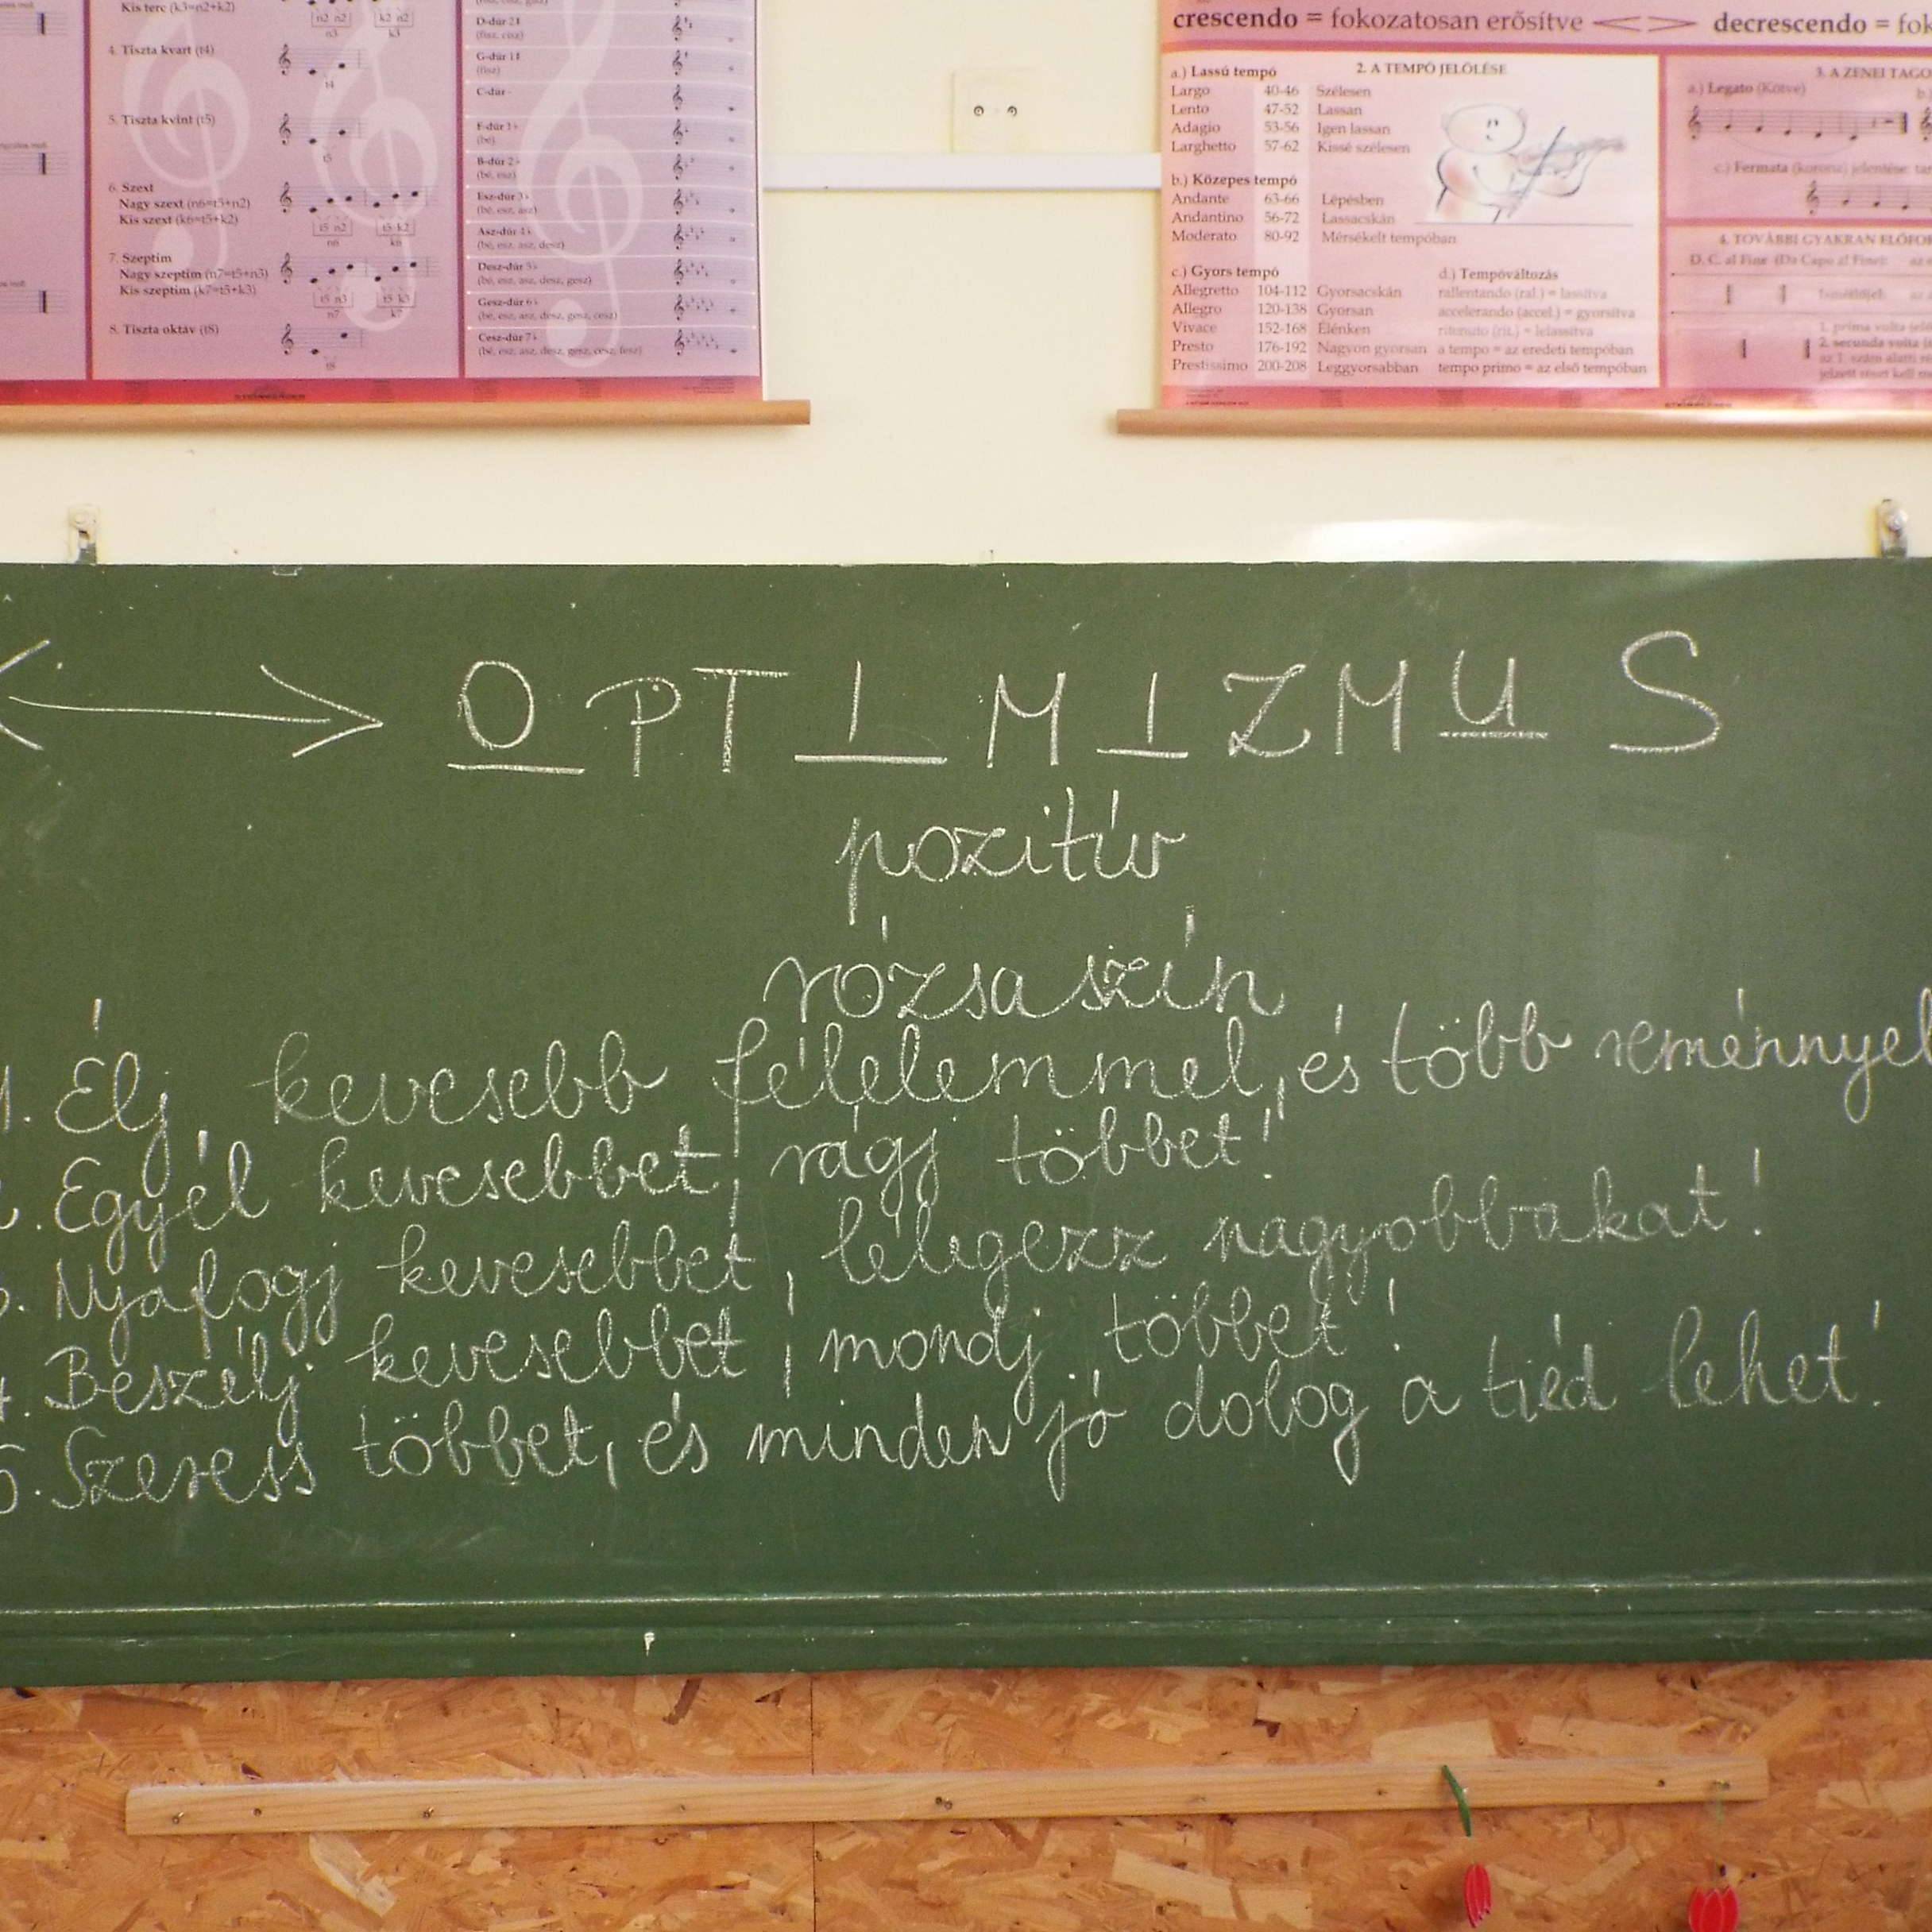 Kis terc (k3=n2+k2)
n2 n2
k2 n2
n3
k3
4. Tiszta kvart (t4)
t4
5. Tiszta kvint (t5)
t5
6. Szext
Nagy szext (n6=t5+n2)
Kis szext (k6=t5+k2)
t5 n2
t5 k2
n6
k6
7. Szeptim
Nagy szeptim (n7=t5+n3)
Kis szeptim (k7=t5+k3)
t5 n3
t5 k3
n7
k7
8. Tiszta oktáv (t8)
t8
D-dúr 2♯
(fisz, cisz)
G-dúr 1♯
(fisz)
C-dúr -
F-dúr 1♭
(bé)
B-dúr 2♭
(bé, esz)
Esz-dúr 3♭
(bé, esz, asz)
Asz-dúr 4♭
(bé, esz, asz, desz)
Desz-dúr 5♭
(bé, esz, asz, desz, gesz)
Gesz-dúr 6♭
(bé, esz, asz, desz, gesz, cesz)
Cesz-dúr 7♭
(bé, esz, asz, desz, gesz, cesz, fesz)
crescendo = fokozatosan erősítve < > decrescendo = fok
2. A TEMPÓ JELÖLÉSE
a.) Lassú tempó
Largo 40-46 Szélesen
Lento 47-52 Lassan
Adagio 53-56 Igen lassan
Larghetto 57-62 Kissé szélesen
b.) Közepes tempó
Andante 63-66 Lépésben
Andantino 56-72 Lassacskán
Moderato 80-92 Mérsékelt tempóban
c.) Gyors tempó
Allegretto 104-112 Gyorsacskán
Allegro 120-138 Gyorsan
Vivace 152-168 Élénken
Presto 176-192 Nagyon gyorsan
Prestissimo 200-208 Leggyorsabban
d.) Tempóváltozás
rallentando (ral.) = lassítva
accelerando (accel.) = gyorsítva
ritenuto (rit.) = lelassítva
a tempo = az eredeti tempóban
tempo primo = az első tempóban
3. A ZENEI TAGO
a.) Legato (Kötve)
b.)
c.) Fermata (korona) jelentése: tar
4. TOVÁBBI GYAKRAN ELŐFOR
D. C. al Fine (Da Capo al Fine):
Ismétlőjel:
1. prima volta
2. secunda volta
az 1. szám alatti
jelzett részt kell
OPTIMIZMUS
pozitív
rózsaszín
1. Élj kevesebb félelemmel, és több reménnyel
. Egyél kevesebbet, rágj többet!
. Nyafogj kevesebbet, lélegezz nagyobbakat!
. Beszélj kevesebbet, mondj többet!
5. Szeress többet, és minden jó dolog a tiéd lehet!